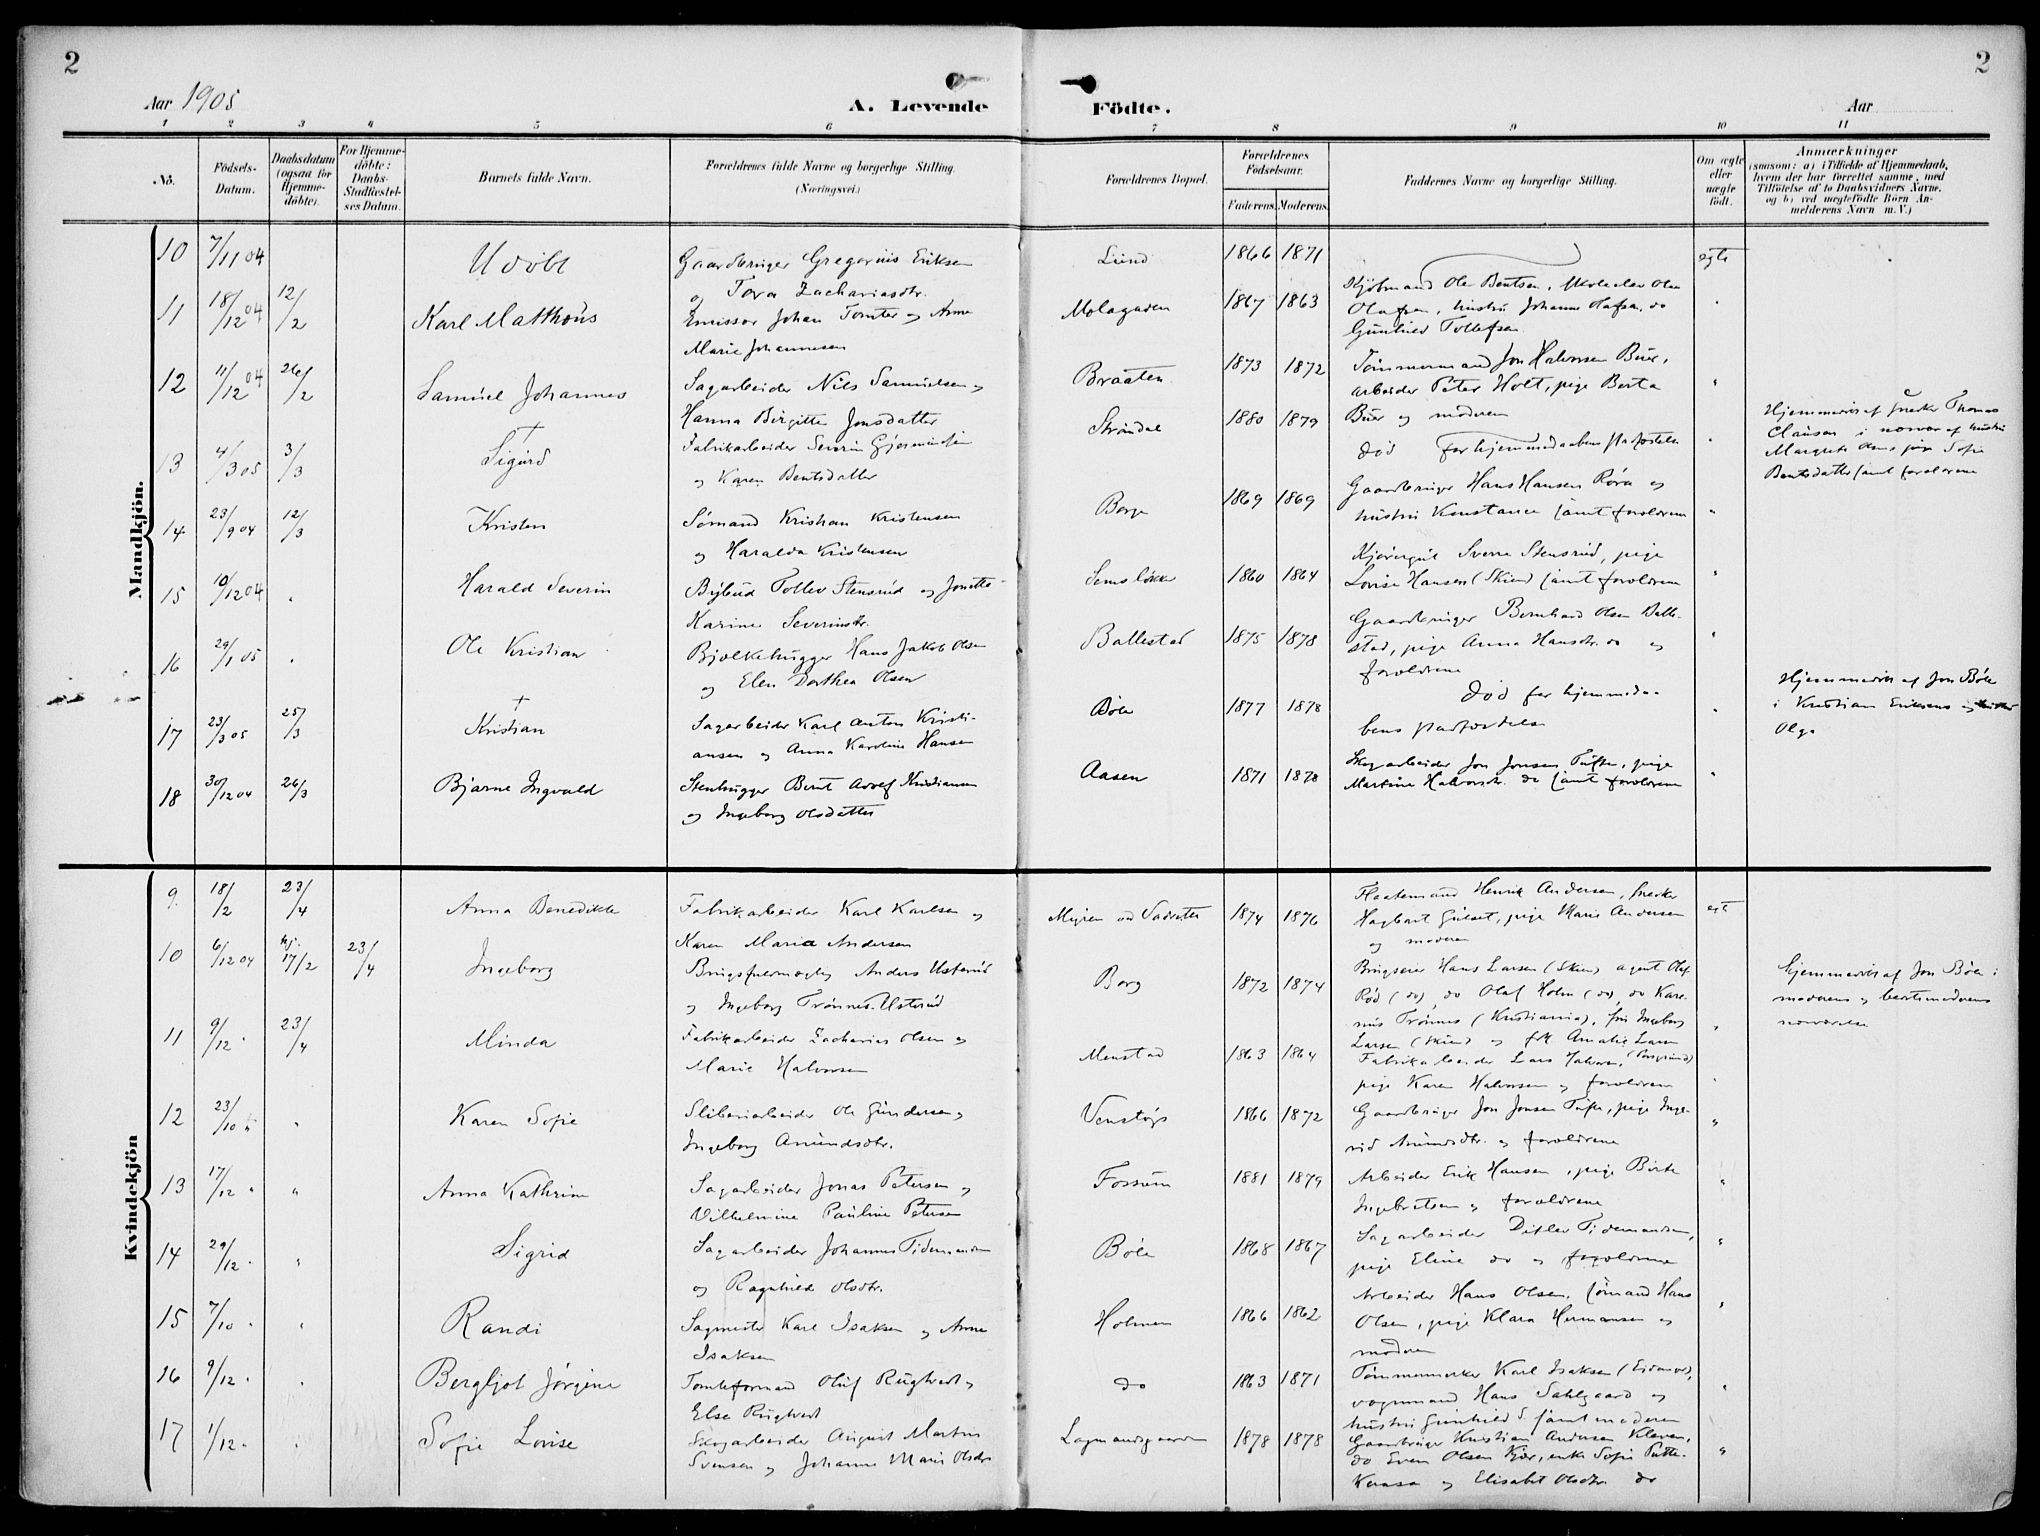 2
2
Aar 1905
A. Levende Födte.
Aar
1 2 3 4 5 6 7 8 9 10 11
No.
Födsels-Datum.
Daabsdatum (ogsaa for Hjemmedöbte).
For Hjemmedöbte: Daabs-Stadfæstelses Datum.
Barnets fulde Navn.
Forældrenes fulde Navne og borgerlige Stilling.
(Næringsvei.)
Forældrenes Bopæl.
Forældrenes Födselsaar.
Faderens. Moderens.
Faddernes Navne og borgerlige Stilling.
Om ægte eller uægte födt.
Anmærkninger
(saasom: a) i Tilfælde af Hjemmedaab, hvem der har forrettet samme, med Tilföielse af to Daabsvidners Navne, og b) ved uægtefödte Börn Anmelderens Navn m. V.)
Mandkjön.
10 7/11 04 Udöbt Gaardbruger Gregorius Eriksen
og Tora Zachariasdtr. Lund 1866 1871 egte
11 18/12 04 12/2 Karl Matthæus Emissær Johan Tomter og Anne
Marie Johannesen Molagaden 1867 1863 Kjøbmand Ole Bentsen, Skoleelev Olav
Olafsen, hustru Johanne Olafsen, do
Gunhild Tollefsen
12 11/12 04 26/2 Samuel Johannes Sagarbeider Nils Samuelsen og
Hanna Birgitte Jonsdatter Braaten 1873 1872 Tømmermand Jon Halvorsen Buer,
arbeider Peter Holt, pige Berta
Buer og moderen
13 4/3 05 3/3 † Sigurd Fabrikarbeider Severin Gjermundsen
og Karen Bentsdatter Strømdal 1880 1879 død før hjemmedaabens stadfæstelse
Hjemmedøbt af snekker Thomas
Clausen i nærvær af hustru
Margrete Olsen, pige Sofie
Bentsdatter samt forældrene
14 23/9 04 12/3 Kristen Sømand Kristian Kristensen
og Haralda Kristensen Borge 1869 1869 Gaardbruger Hans Hansen Røra og
hustru Konstance samt forældrene
15 10/12 04 " Harald Severin Bybud Tollev Stensrud og Jonette
Karine Severinsdtr. Semsløkke 1860 1864 Sverre Stensrud, pige
Lovise Hansen (Skien) samt forældrene
16 29/1 05 " Ole Kristian Bjelkehugger Hans Jakob Olsen
og Elen Dorthea Olsen Ballestad 1875 1878 Gaardbruger Bernhard Olsen Balle-
stad, pige Anna Hansdtr. do og
forældrene
17 23/3 05 25/3 † Kristian Sagarbeider Karl Anton Kristi-
ansen og Anna Karoline Hansen Bøle 1877 1878 død før hjemmedaa-
bens stadfæstelse
Hjemmedøbt af Jon Bøle
i Kristian Eriksens og
Olga
18 30/12 04 26/3 Bjarne Ingvald Stenhugger Bernt Adolf Kristiansen
og Ingeborg Olsdatter Aasen 1871 1878 Skogarbeider Jon Jonsen Tufte, pige
Martine Halvorsdtr. do samt forældrene
Kvindekjön
9 18/2 23/4 Anna Benedikte Fabrikarbeider Karl Karlsen og
Karen Maria Andersen Myren ved Vadrette 1874 1876 Flaatemand Henrik Andersen, snekker
Hagbart Gulset, pige Marie Andersen
og moderen egte
10 6/12 04 hj. 17/2 23/4 Ingeborg Brugsfuldmægtig Anders Usterud
og Ingeborg Trømnes-Usterud Borg 1872 1874 Brugseier Hans Larsen (Skien) agent Olaf
Rød (do), do Olaf Holm (do), do Kare-
nius Trømnes (Kristiania), fru Ingeborg
Larsen (Skien) og frk Amalie Larsen
(Porsgrund)
Hjemmedøbt af Jon Bøle i
moderens og bestemoderens
nærværelse
11 9/12 " 23/4 Minda Fabrikarbeider Zacharias Olsen og
Marie Halvorsen Menstad 1863 1864 Fabrikarbeider Lars Halvorsen,
pige Karen Halvorsen og forældrene
12 23/10 " " Karen Sofie Sliberiarbeider Ole Gundersen og
Ingeborg Amundsdtr. Venstøp 1866 1872 Gaardbruger Jon Jonsen Tufte, pige Inge-
rid Amundsdtr. og forældrene
13 17/12 " " Anna Kathrine Sagarbeider Jonas Petersen og
Vilhelmine Pauline Petersen Fossum 1881 1879 Arbeider Erik Hansen, pige Birte
Ingebretsen og forældrene
14 29/12 " " Sigrid Sagarbeider Johannes Tidemandsen
og Ragnhild Olsdtr. Bøle 1868 1867 Sagarbeider Ditlev Tidemandsen,
pige Eline do og forældrene
15 7/10 " " Randi Sagmester Karl Isaksen og Anne
Isaksen Holmen 1866 1862 Arbeider Hans Olsen, sømand Hans
Olsen, pige Klara Hermansen og
moderen
16 9/12 " " Bergljot Jørgine Tomteformand Oluf Rugtvedt og
Else Rugtvedt do 1863 1871 Tømmermerker Karl Isaksen (Eidanger),
vognmand Hans Sahlgaard og
hustru Gunhild S. samt moderen
17 1/12 " " Sofie Lovise Skogarbeider August Martin
Svensen og Johanne Marie Olsdtr Lagmandsgaarden 1878 1878 Gaardbruger Kristian Andersen Kleven,
do Even Olsen Kjær, enke Sofie Putte-
Kaasa og Elisabet Olsdtr. do